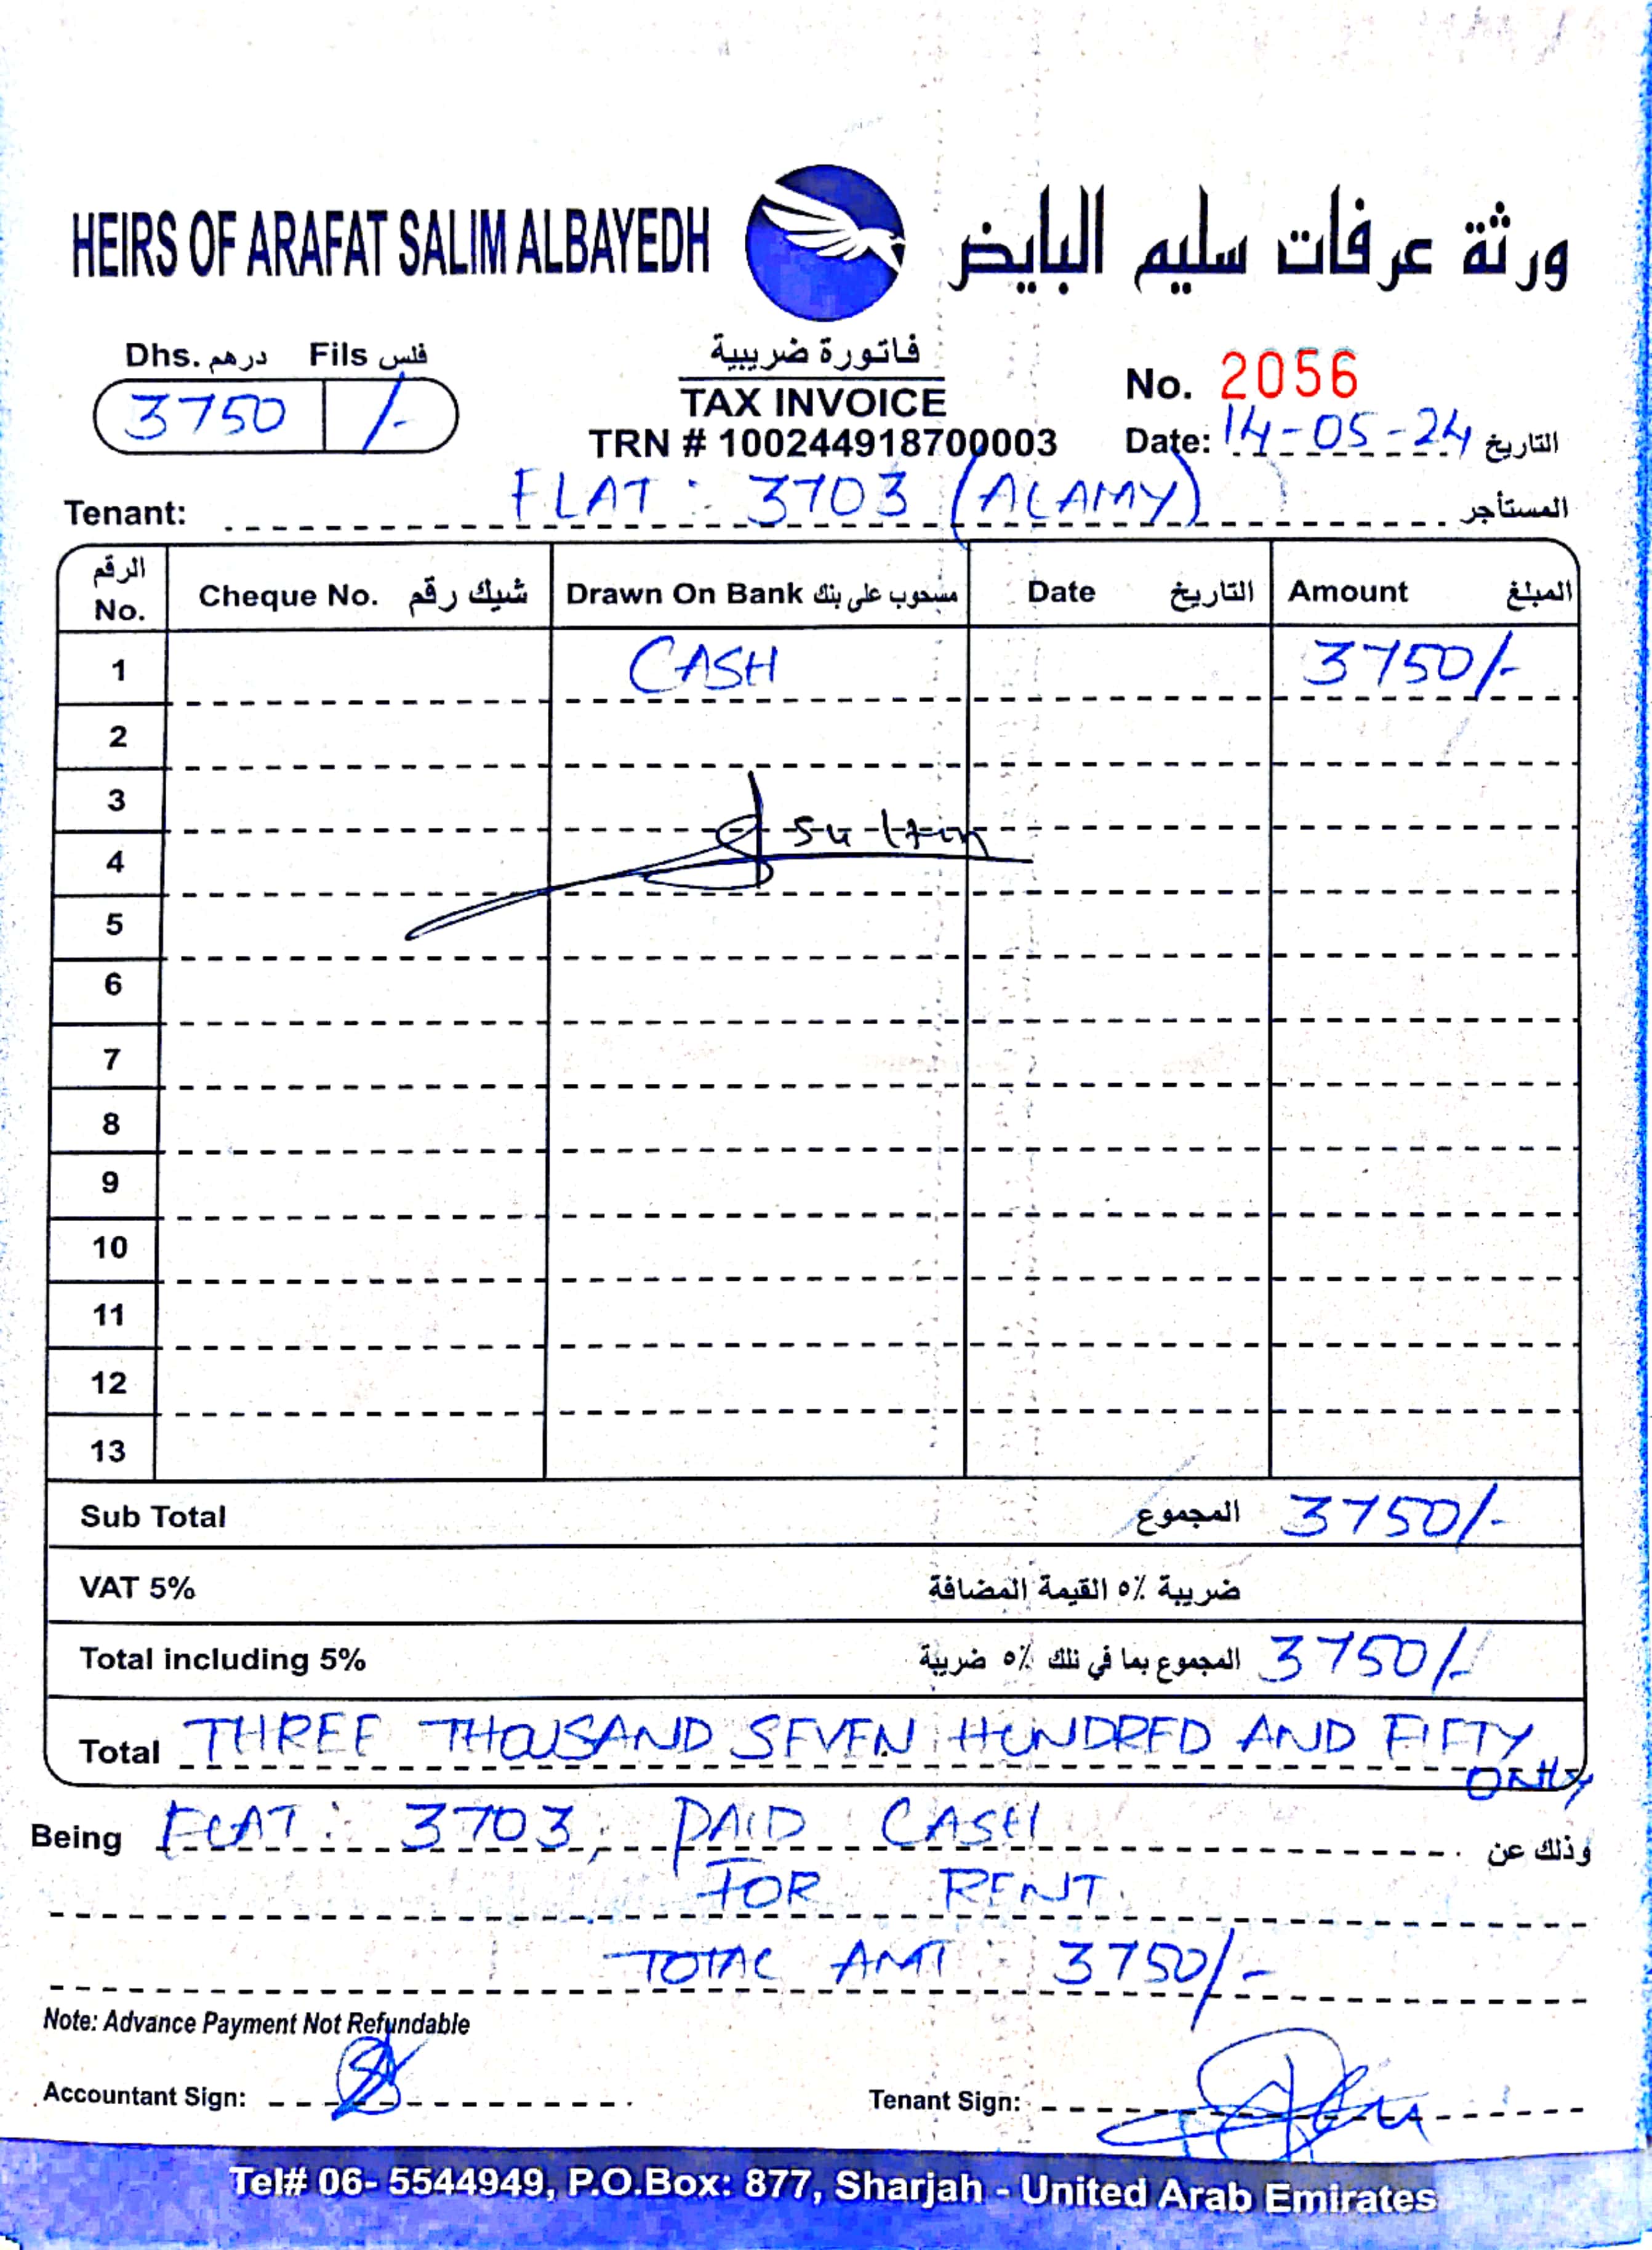 HEIRS OF ARAFAT SALIM ALBAYEDH ورثة عرفات سليم البايض
Dhs. درهم Fils فلس
3750 /-
فاتورة ضريبية
TAX INVOICE
TRN # 100244918700003
No. 2056
Date: 14-05-24 التاريخ
Tenant: FLAT : 3703 (ALAMY) المستأجر
الرقم No. Cheque No. شيك رقم Drawn On Bank مسحوب على بنك Date التاريخ Amount المبلغ
1 CASH 3750/-
2
3
sultan
4
5
6
7
8
9
10
11
12
13
Sub Total المجموع 3750/-
VAT 5% ضريبة ٥٪ القيمة المضافة
Total including 5% المجموع بما في ذلك ٥٪ ضريبة 3750/-
Total THREE THOUSAND SEVEN HUNDRED AND FIFTY
ONLY
Being FLAT : 3703, PAID CASH وذلك عن
FOR RENT
TOTAL AMT : 3750/-
Note: Advance Payment Not Refundable
Accountant Sign: Tenant Sign:
Tel# 06- 5544949, P.O.Box: 877, Sharjah - United Arab Emirates